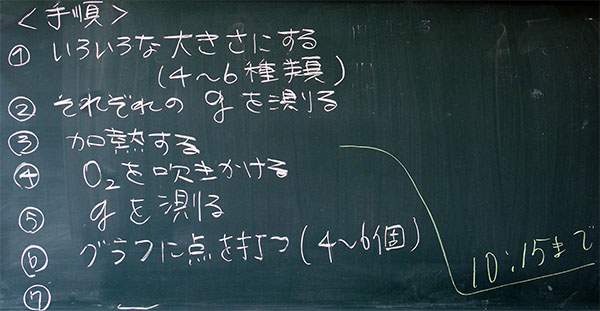 ＜手順＞
① いろいろな大きさにする
(4～6種類)
② それぞれの gを測る
③ 加熱する
④ O₂を吹きかける
⑤ gを測る
⑥ グラフに点を打つ(4～6個)
⑦
10:15まで